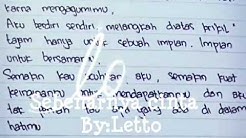 karna mengagumimu.
Aku berdiri sendiri melangkah diatas kerikil"
tajam hanya untuk sebuah impian. Impian
untuk bersamamu.
Semakin kau acuhkan aku, semakin kuat
keinginanku untuk mendapatkanmu dan aku
tak
yang ada di dalam
hatimu
Sebenarnya cinta
By:Letto